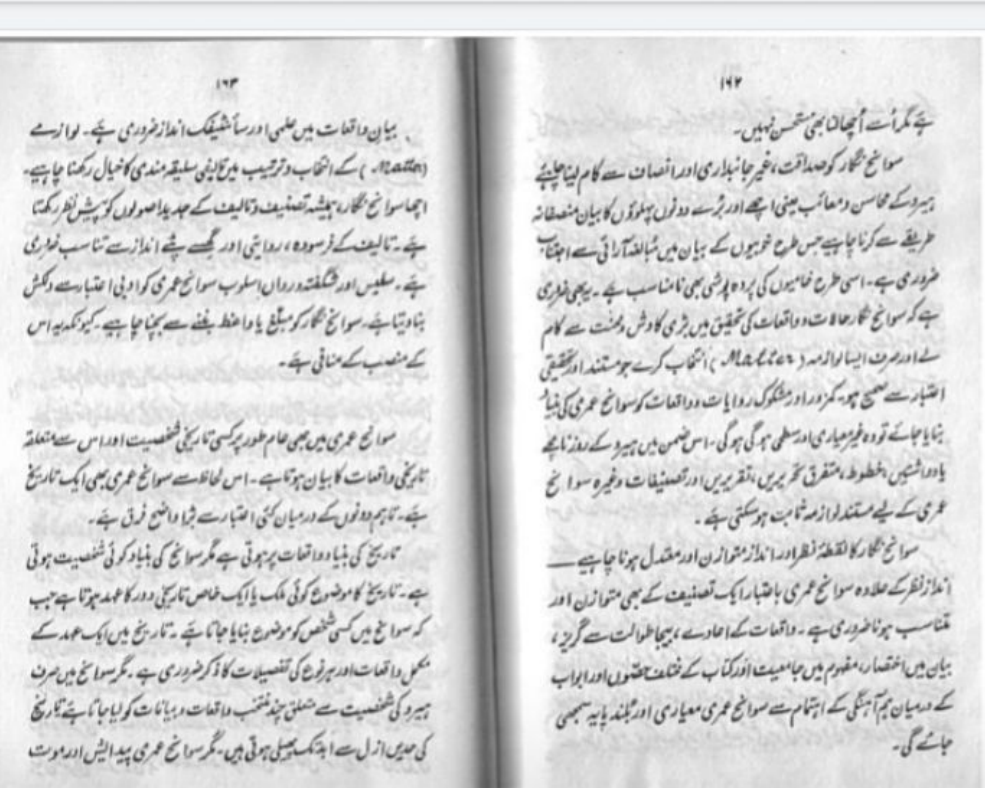 ۱۶۲
ہے مگر اُسے اُچھالنا بھی مستحسن نہیں۔
سوانح نگار کو صداقت، غیر جانبداری اور انصاف سے کام لینا چاہئیے
ہیرو کے محاسن و معائب یعنی اچھے اور بُرے دونوں پہلوؤں کا بیان منصفانہ
طریقے سے کرنا چاہیے جس طرح خوبیوں کے بیان میں مُبالغہ آرائی سے اجتناب
ضروری ہے۔ اسی طرح خامیوں کی پردہ پوشی بھی نامناسب ہے۔ یہ بھی ضروری
ہے کہ سوانح نگار حالات و واقعات کی تحقیق میں بڑی کاوش و محنت سے کام
لے اور صرف ایسا لوازمہ ( ) انتخاب کرے جو مستند اور تحقیقی
اعتبار سے صحیح ہو۔ کمزور اور مشکوک روایات و واقعات کو سوانح عمری کی بنیاد
بنایا جائے تو وہ غیر معیاری اور سطحی ہو گی۔ اس ضمن میں ہیرو کے روزنامچے
یادداشتیں، خطوط، متفرق تحریریں، تقریریں اور تصنیفات وغیرہ سوانح
عمری کے لیے مستند لوازمہ ثابت ہو سکتی ہے۔
سوانح نگار کا نقطۂ نظر اور انداز متوازن اور معتدل ہونا چاہیے ــــ
اندازِ نظر کے علاوہ سوانح عمری باعتبار ایک تصنیف کے بھی متوازن اور
متناسب ہونا ضروری ہے۔ واقعات کے اعادے، بیجا طوالت سے گریز،
بیان میں اختصار، مفہوم میں جامعیت اور کتاب کے مختلف حصّوں اور ابواب
کے درمیان ہم آہنگی کے اہتمام سے سوانح عمری معیاری اور بلند پایہ سمجھی
جائے گی۔
۱۶۳
بیان واقعات میں علمی اور سائنٹیفک انداز ضروری ہے۔ لوازمے
( ) کے انتخاب و ترتیب میں تالیفی سلیقہ مندی کا خیال رکھنا چاہیے۔
اچھا سوانح نگار، ہمیشہ تصنیف و تالیف کے جدید اصولوں کو پیش نظر رکھتا
ہے۔ تالیف کے فرسودہ، روایتی اور گھسے پٹے انداز سے تناسب ضروری
ہے۔ سلیس اور شگفتہ و رواں اسلوب سوانح عمری کو ادبی اعتبار سے دلکش
بنا دیتا ہے۔ سوانح نگار کو مبلّغ یا واعظ بننے سے بچنا چاہیے۔ کیونکہ یہ اس
کے منصب کے منافی ہے۔
سوانح عمری میں بھی عام طور پر کسی تاریخی شخصیت اور اس سے متعلقہ
تاریخی واقعات کا بیان ہوتا ہے۔ اس لحاظ سے سوانح عمری بھی ایک تاریخ
ہے۔ تاہم دونوں کے درمیان کئی اعتبار سے بڑا واضح فرق ہے۔
تاریخ کی بنیاد واقعات پر ہوتی ہے مگر سوانح کی بنیاد کوئی شخصیت ہوتی
ہے۔ تاریخ کا موضوع کوئی ملک یا ایک خاص تاریخی دور کا عہد ہوتا ہے جب
کہ سوانح میں کسی شخص کو موضوع بنایا جاتا ہے۔ تاریخ میں ایک عہد کے
مکمل واقعات اور ہر نوع کی تفصیلات کا ذکر ضروری ہے۔ مگر سوانح میں صرف
ہیرو کی شخصیت سے متعلق چند منتخب واقعات و بیانات کو لیا جاتا ہے تاریخ
کی حدیں ازل سے ابد تک پھیلی ہوتی ہیں۔ مگر سوانح عمری پیدائش اور موت